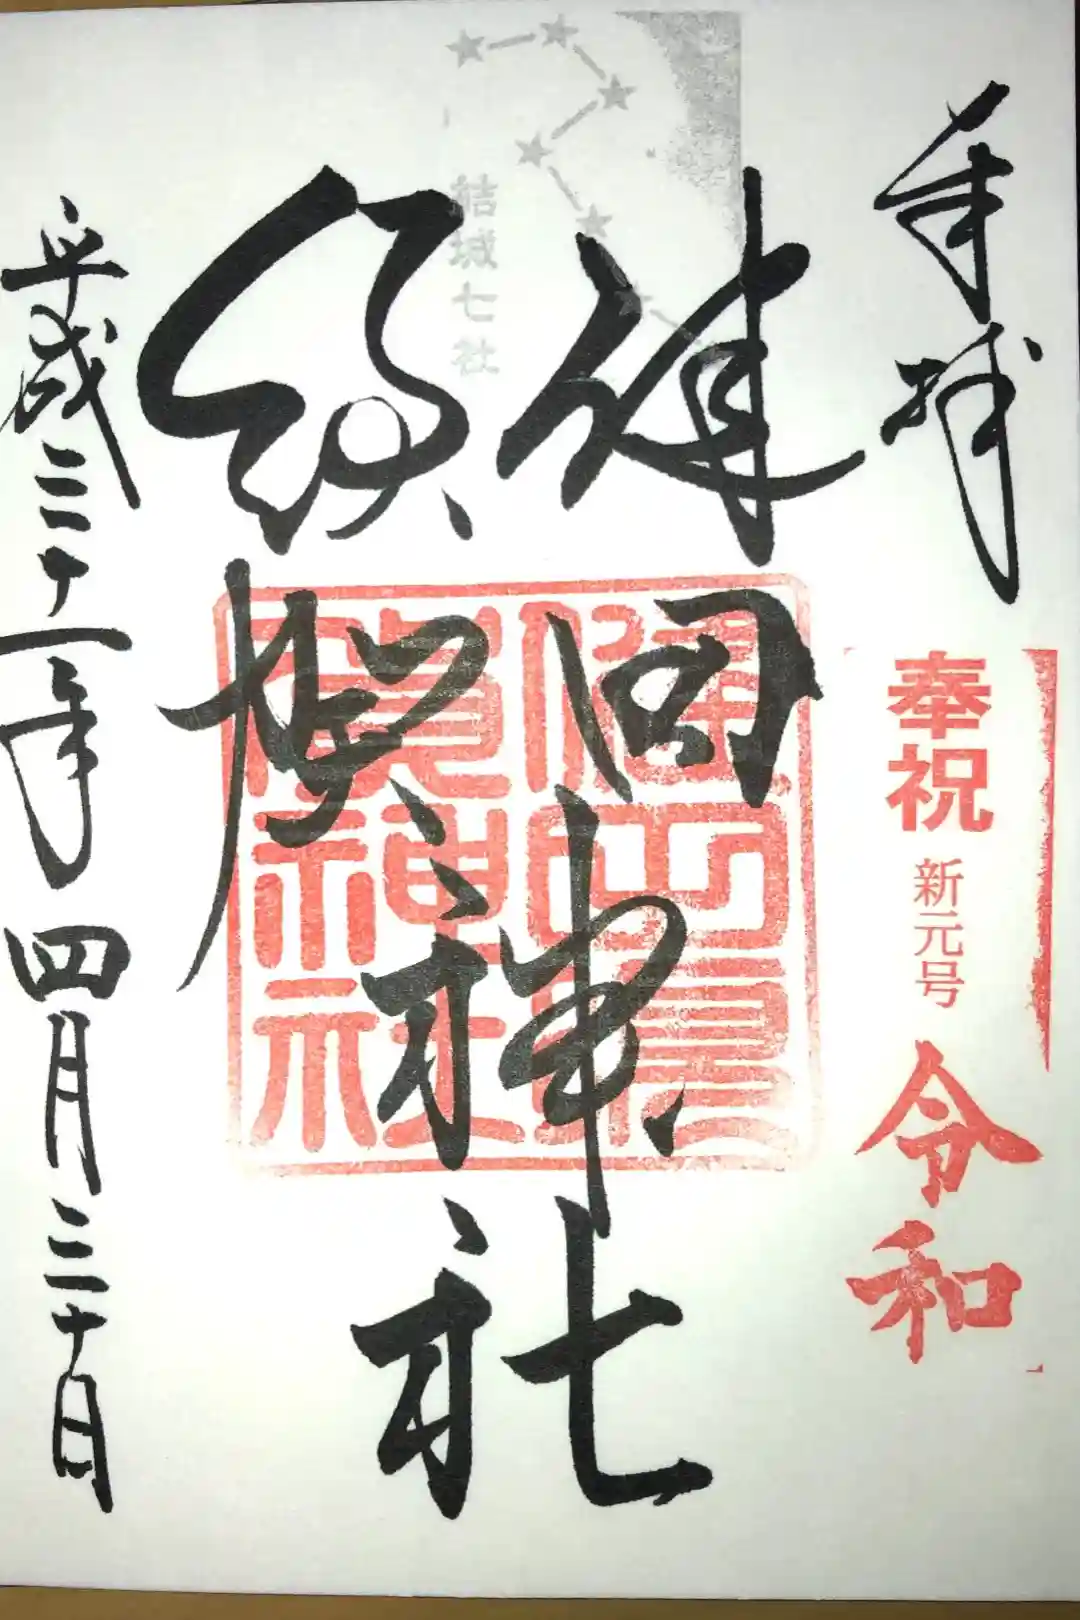 奉拝
奉祝
新元号
令和
結城七社
健田
須賀
神社
健田須
賀神社
平成三十一年四月三十日